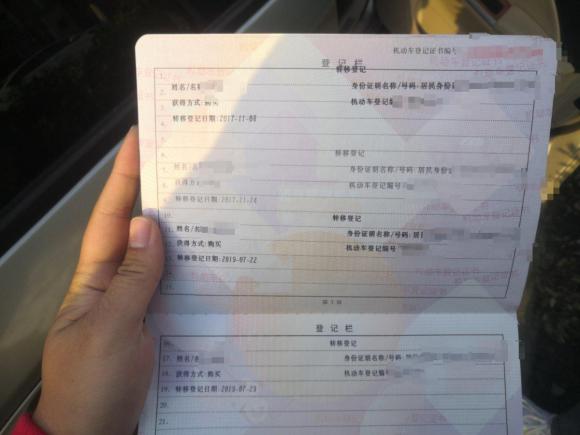 机动车登记证书编号
登记栏
转移登记
1.
2. 姓名/名称 身份证明名称/号码:居民身份
3. 获得方式:购买 机动车登记编
4. 转移登记日期:2017-11-08
5.
6. 转移登记
7. 姓名/名 身份证明名称/号码:居民身份
8. 获得方 机动车登记编号
9. 转移登记日期:2017-11-24
10. 转移登记
姓名/ 身份证明名称/号码:居
获得方式:购买 机动车登记编号
转移登记日期:2019-07-22
登记栏
转移登记
17. 姓名/名 身份证明名称/号码
18. 获得方式:购买 机动车登记编
19. 转移登记日期:2019-07-23
20.
21.